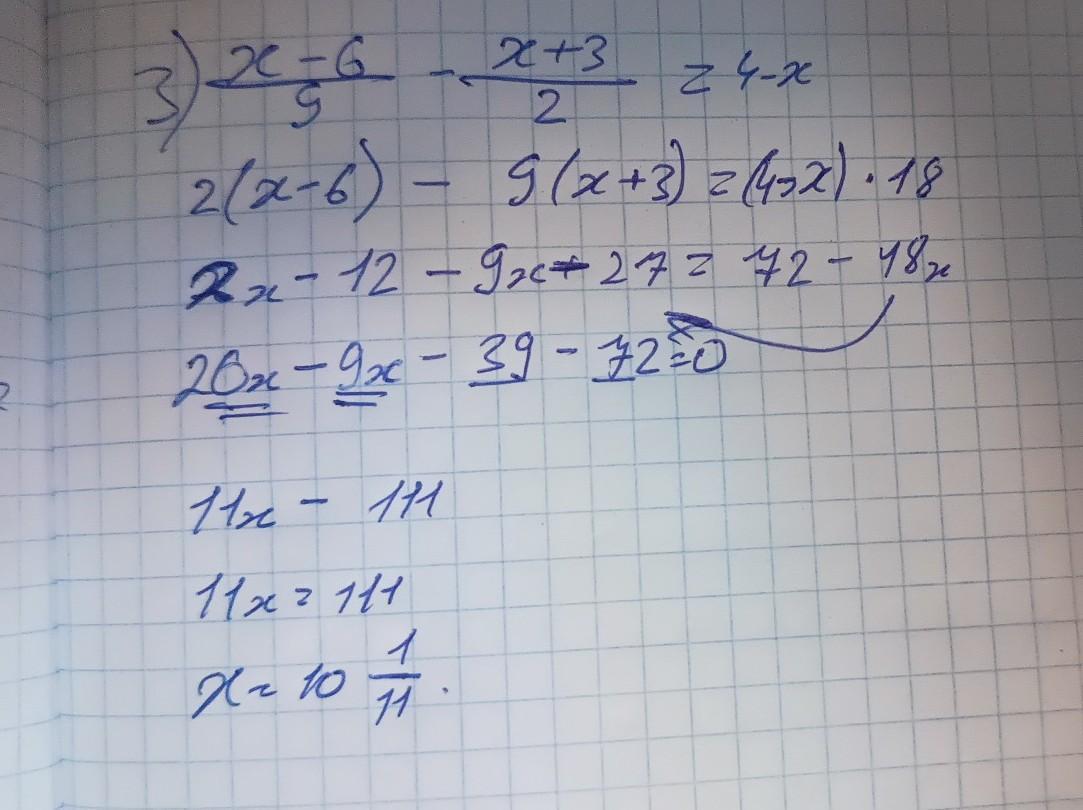 3) (x-6)/9 - (x+3)/2 = 4-x
2(x-6) - 9(x+3) = (4-x) · 18
2x - 12 - 9x - 27 = 72 - 18x
20x - 9x - 39 - 72 = 0
11x - 111
11x = 111
x = 10 1/11.